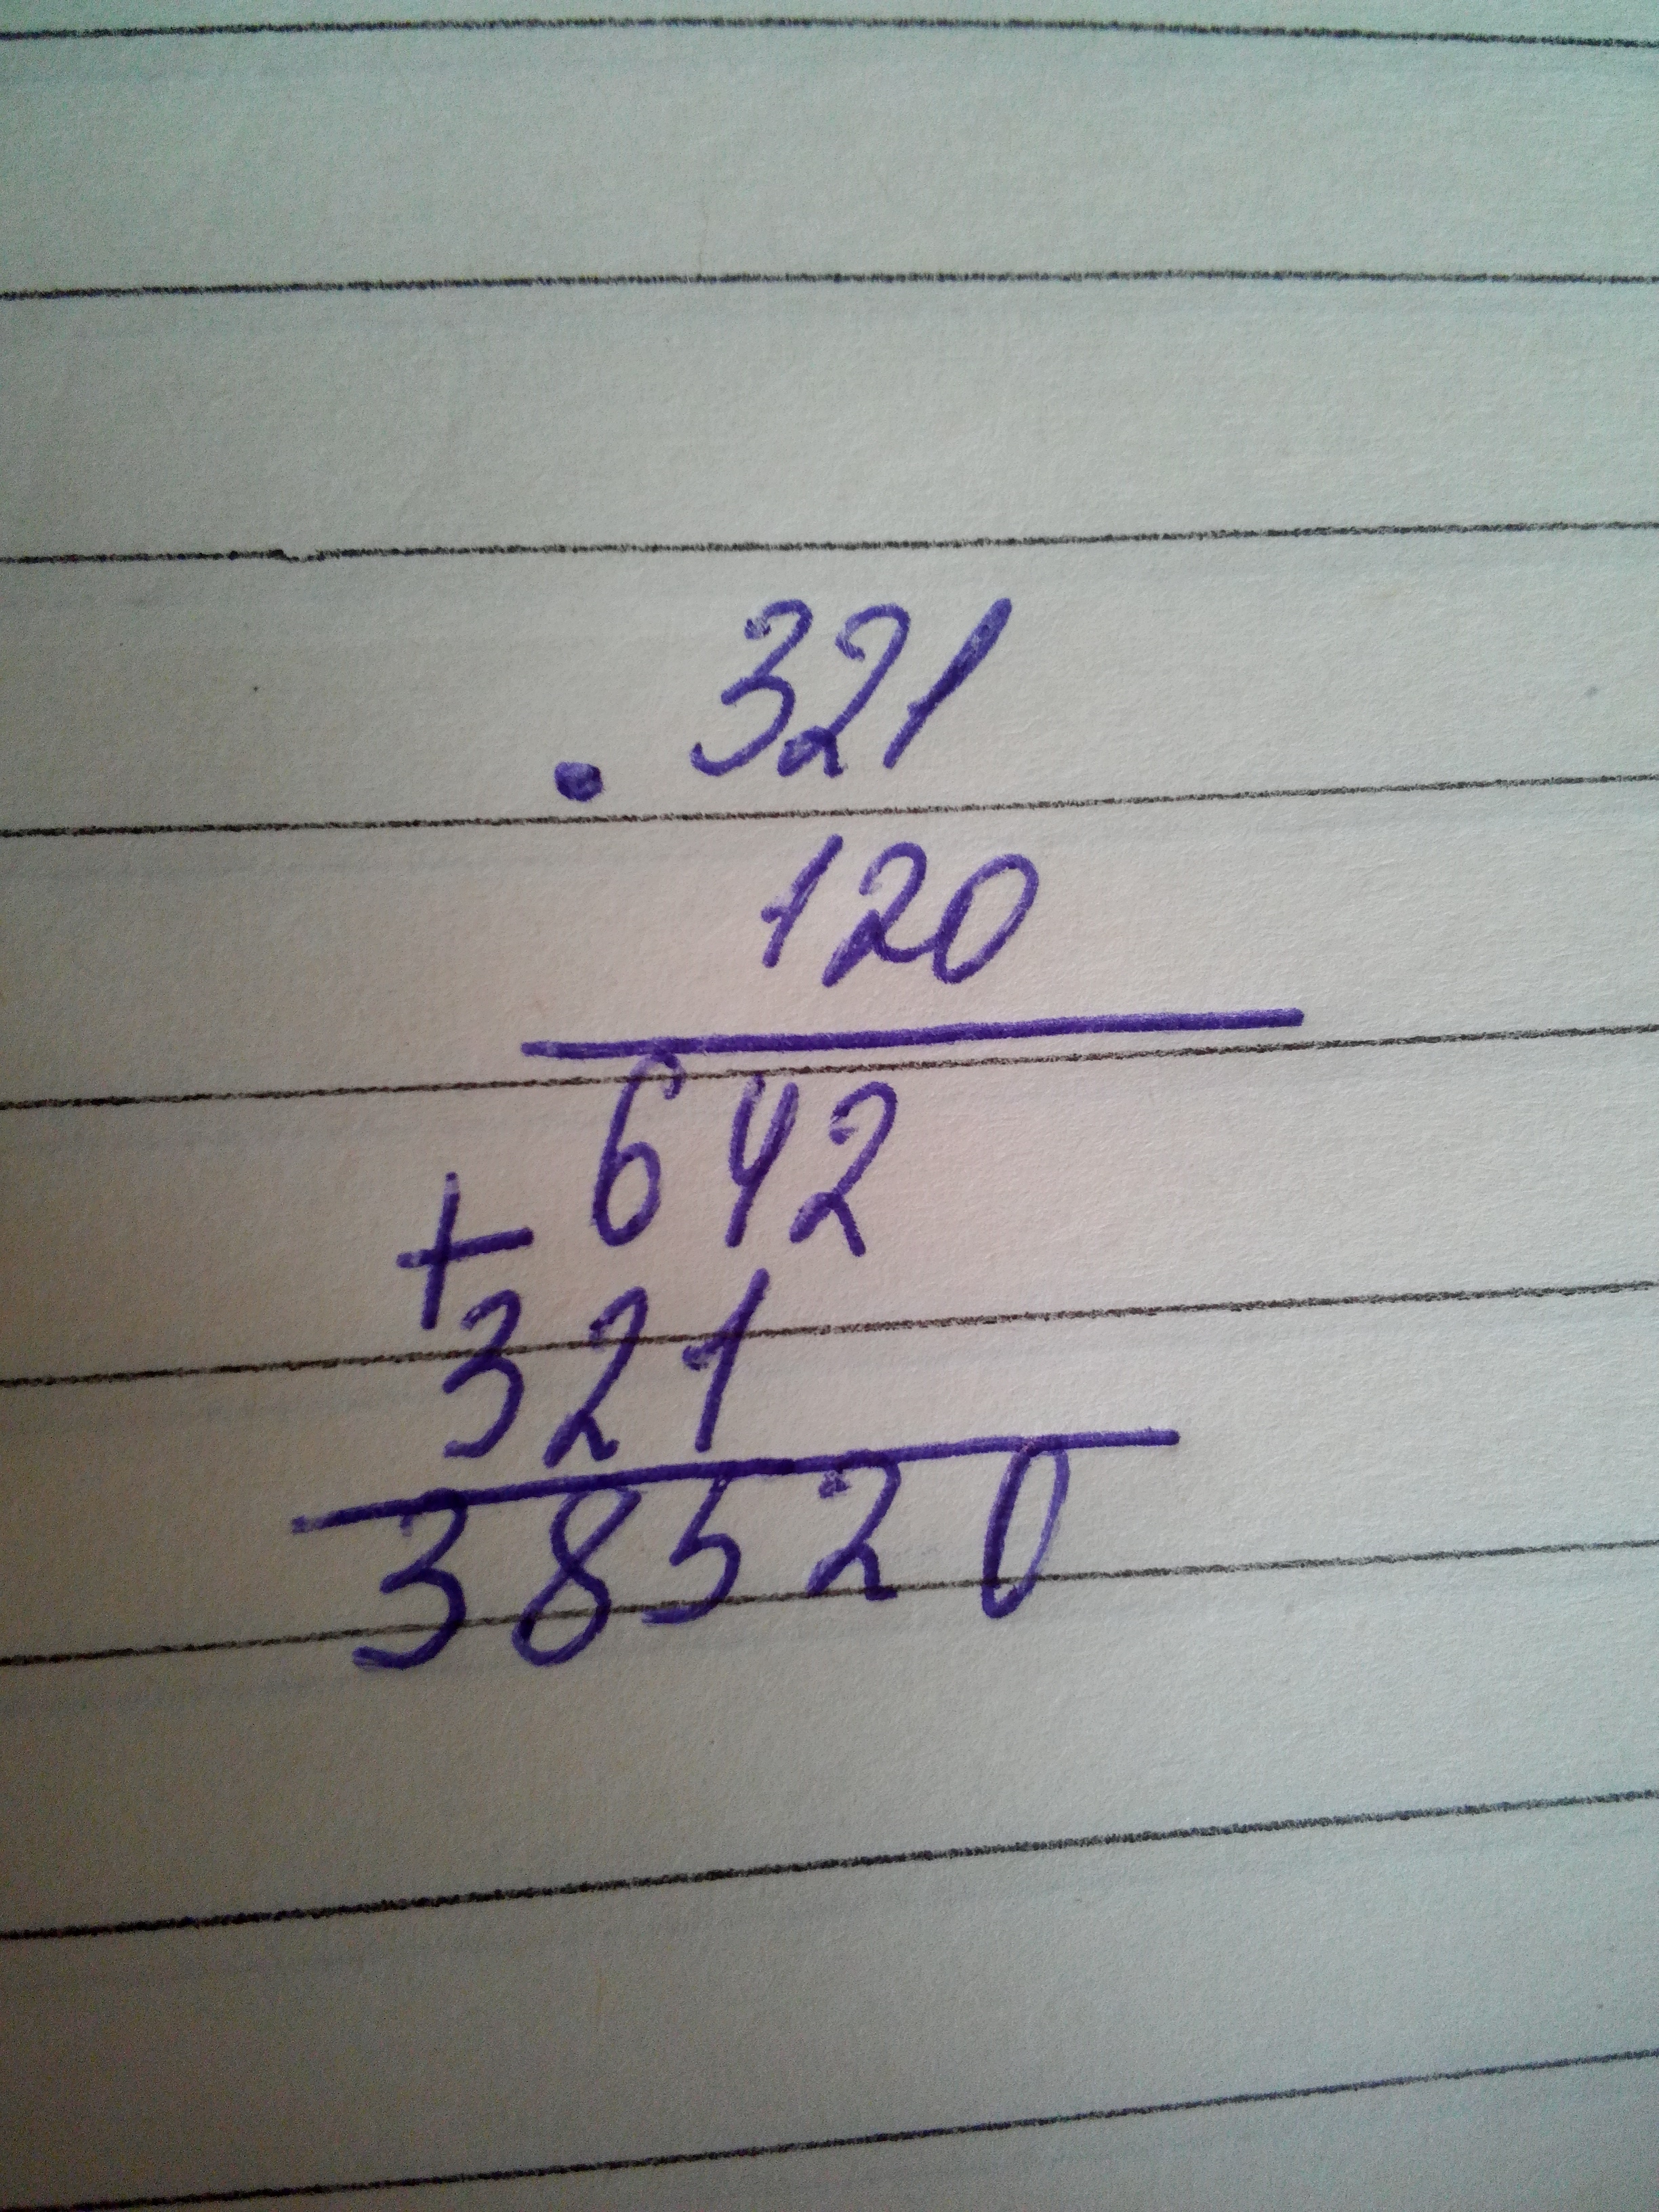 . 321
120
642
+
321
38520